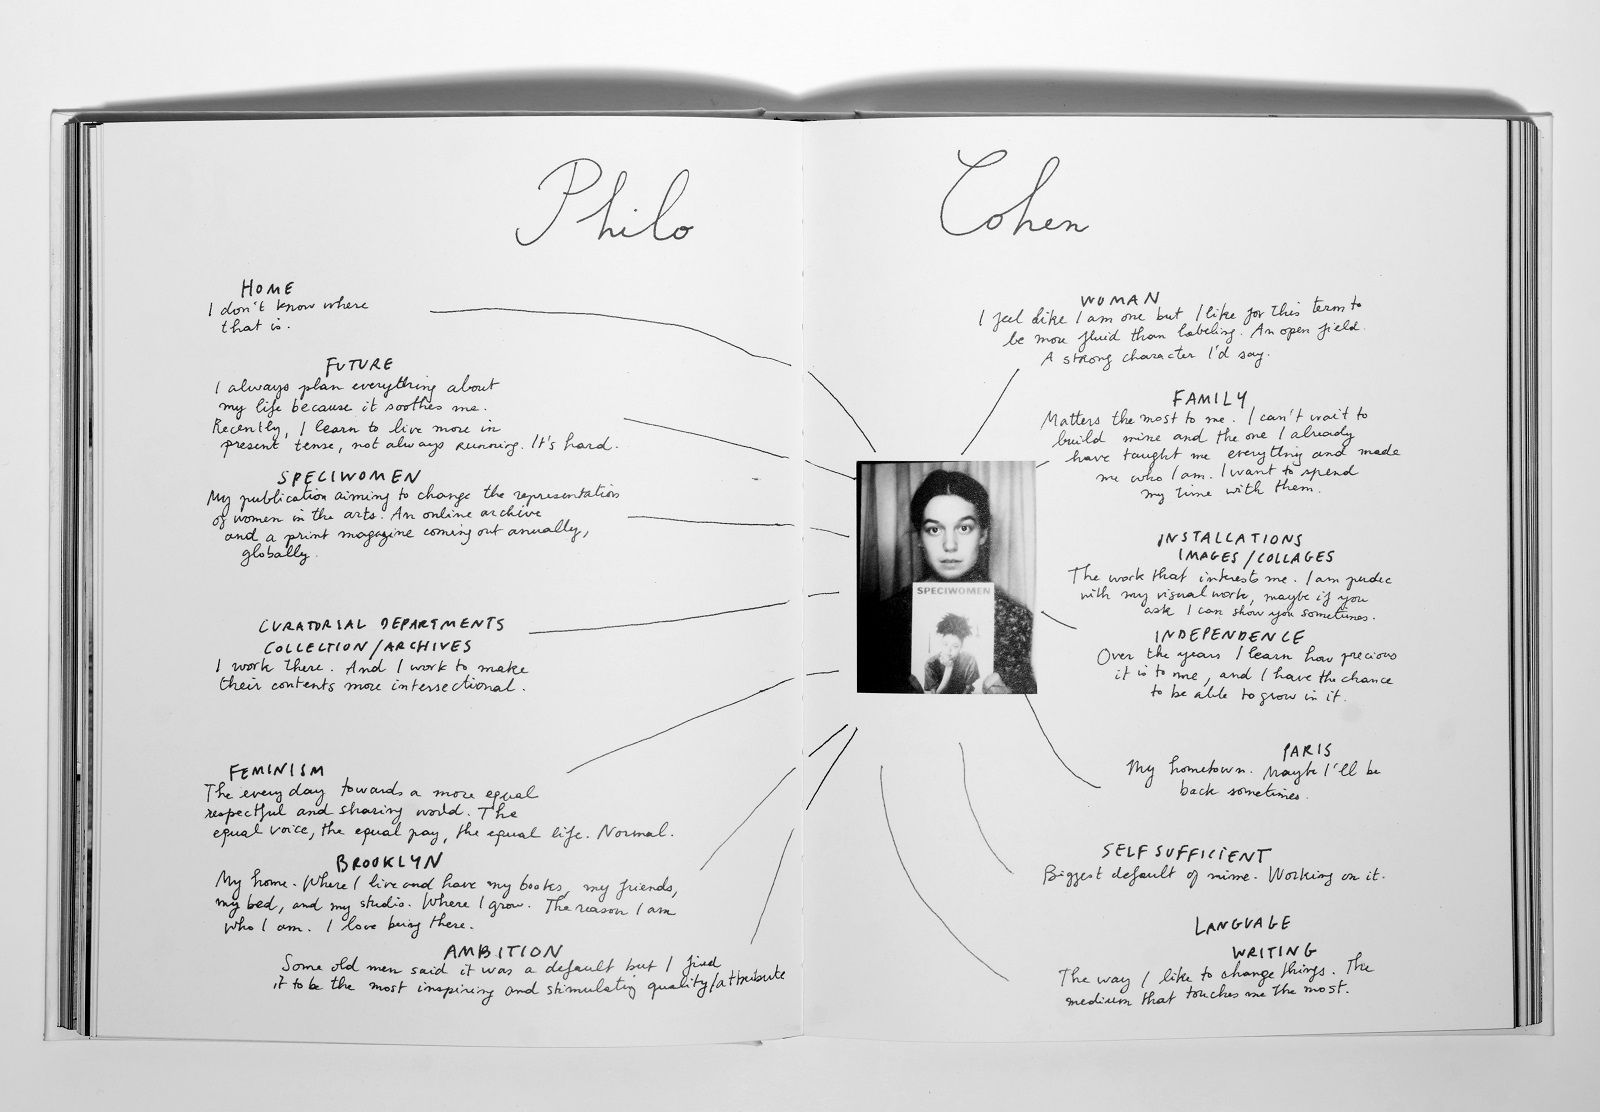 Philo Cohen
HOME
I don't know where
that is.
FUTURE
I always plan everything about
my life because it soothes me.
Recently, I learn to live more in
present tense, not always running. It's hard.
SPECIWOMEN
My publication aiming to change the representation
of women in the arts. An online archive
and a print magazine coming out annually,
globally.
CURATORIAL DEPARTMENTS
COLLECTION/ARCHIVES
I work there. And I work to make
their contents more intersectional.
FEMINISM
The every day towards a more equal
respectful and sharing world. The
equal voice, the equal pay, the equal life. Normal.
BROOKLYN
My home. Where I live and have my books, my friends,
my bed, and my studio. Where I grow. The reason I am
who I am. I love being there.
AMBITION
Some old men said it was a default but I find
it to be the most inspiring and stimulating quality/attribute
SPECIWOMEN
WOMAN
I feel like I am one but I like for this term to
be more fluid than labeling. An open field.
A strong character I'd say.
FAMILY
Matters the most to me. I can't wait to
build mine and the one I already
have taught me everything and made
me who I am. I want to spend
my time with them.
INSTALLATIONS
IMAGES/COLLAGES
The work that interests me. I am pudic
with my visual work, maybe if you
ask I can show you sometimes.
INDEPENDENCE
Over the years I learn how precious
it is to me, and I have the chance
to be able to grow in it.
PARIS
My hometown. Maybe I'll be
back sometimes.
SELF SUFFICIENT
Biggest default of mine. Working on it.
LANGUAGE
WRITING
The way I like to change things. The
medium that touches me the most.